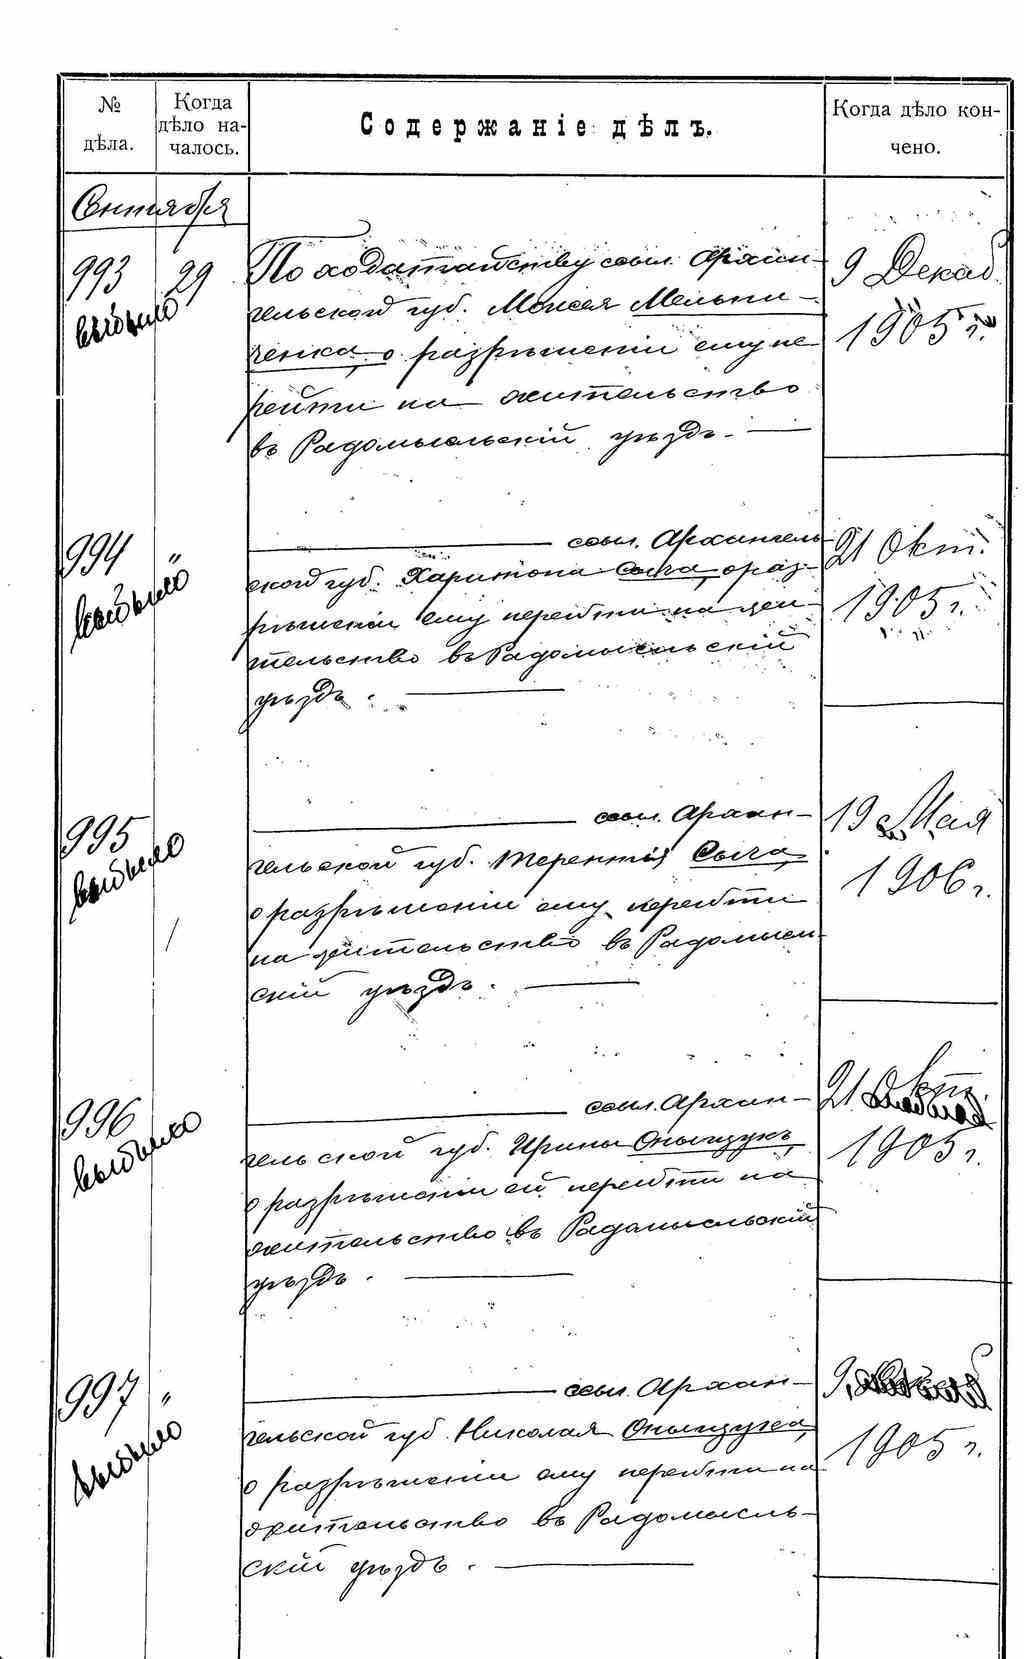 № дѣла.
Когда дѣло на-
чалось.
Содержаніе дѣлъ.
Когда дѣло кон-
чено.
Сентября
993 29 По ходатайству ссыл. Архан-
гельской губ. Моисея Мельни-
ченка, о разрѣшеніи ему пе
рейти на жительство
въ Радомысльскій уѣздъ. —
выбыло
9 Декаб.
1905 г.
994 " ссыл. Архангель
ской губ. Харитона Сыча, о раз-
рѣшеніи ему перейти на жи-
тельство въ Радомысльскій
уѣздъ. —
выбыло
21 Окт.
1905 г.
995 ссыл. Архан-
гельской губ. Терентія Сыча,
о разрѣшеніи ему перейти
на жительство въ Радомысль-
скій уѣздъ. —
выбыло
19 Мая
1906 г.
996 ссыл. Архан-
гельской губ. Ирины
о разрѣшеніи ей перейти на
жительство въ Радомысльскій
уѣздъ. —
выбыло
21 Окт.
1905 г.
997 " ссыл. Архан-
гельской губ. Николая
о разрѣшеніи ему перейти на
жительство въ Радомысль-
скій уѣздъ. —
выбыло
9
1905 г.